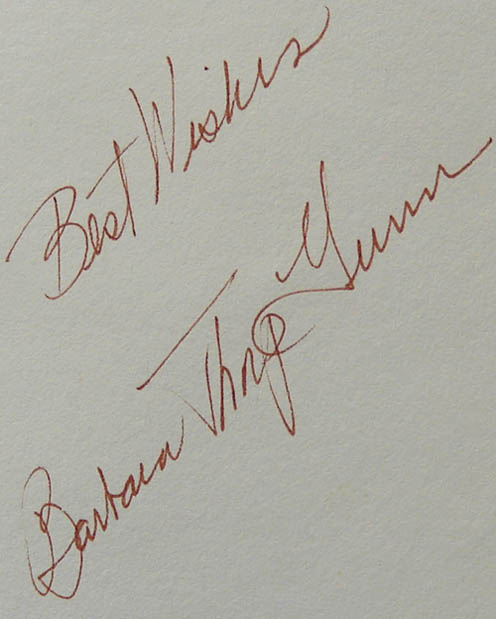 Best Wishes
Barbara Thorp Gunn